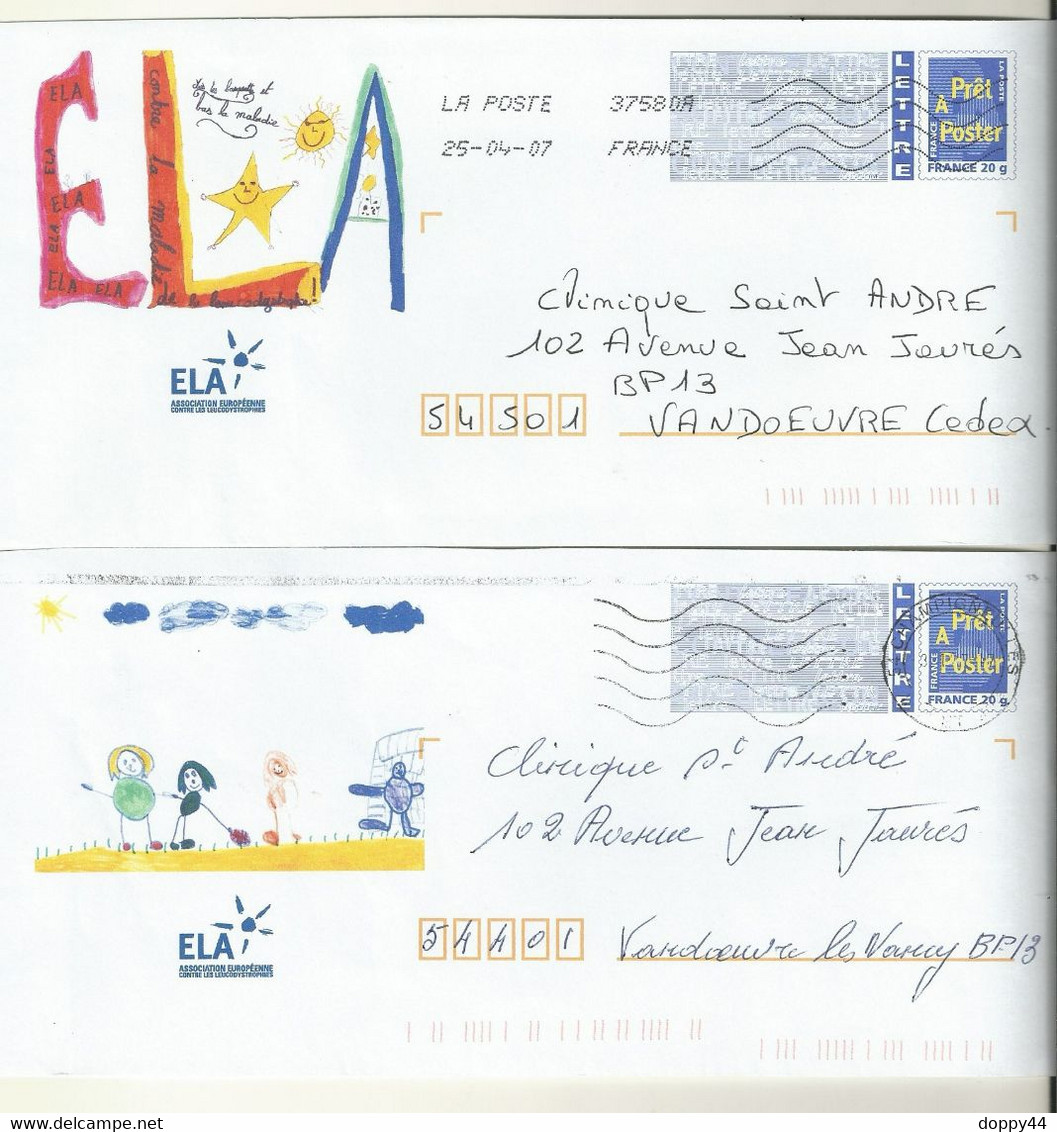 ELA
ELA
ELA
ELA
ELA
ELA
ELA
contre la maladie
de la leucodystrophie!
bas la maladie
ELA
ASSOCIATION EUROPÉENNE
CONTRE LES LEUCODYSTROPHIES
LA POSTE 37580A
25-04-07 FRANCE
LETTRE
Prêt
A
Poster
LA POSTE
FRANCE
FRANCE 20 g
Clinique Saint ANDRE
102 Avenue Jean Jaurés
BP13
54501 VANDOEUVRE Cedex
LETTRE
Prêt
A
Poster
LA POSTE
FRANCE
FRANCE 20 g
Clinique St André
102 Avenue Jean Jaurés
54401 Vandoeuvre les Nancy BP13
ELA
ASSOCIATION EUROPÉENNE
CONTRE LES LEUCODYSTROPHIES
doppy44